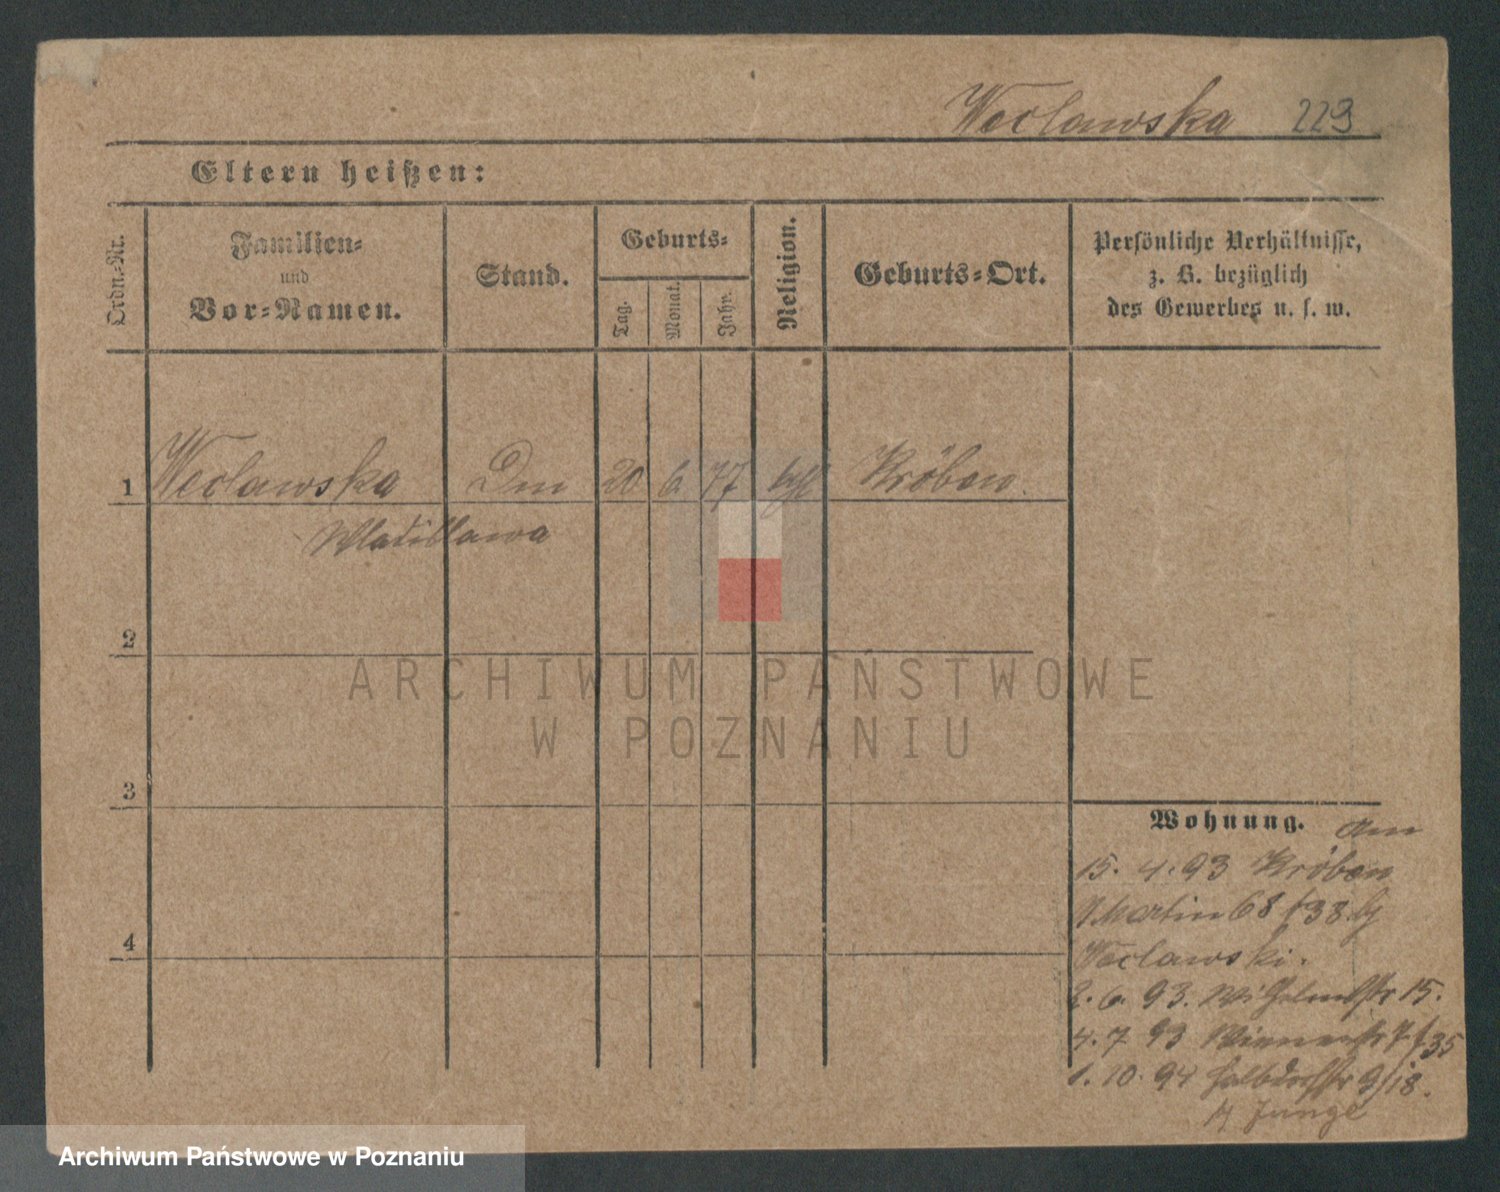 Weclawska 223
Eltern heißen:
Ordn.-Nr.
Familien-
und
Vor-Namen.
Stand.
Geburts-
Tag.
Monat.
Jahr.
Religion.
Geburts-Ort.
Persönliche Verhältnisse,
z. B. bezüglich
des Gewerbes u. s. w.
1 Weclawska 20 6 77 Kröben.
Wladislawa
2
3
4
Wohnung.
15. 4. 93 Kröben
Martin 68
Weclawski.
2. 6. 93. Wilhelmstr 15.
4. 7 93
1. 10. 94 Halbdorfstr
Junge
ARCHIWUM PAŃSTWOWE
W POZNANIU
Archiwum Państwowe w Poznaniu